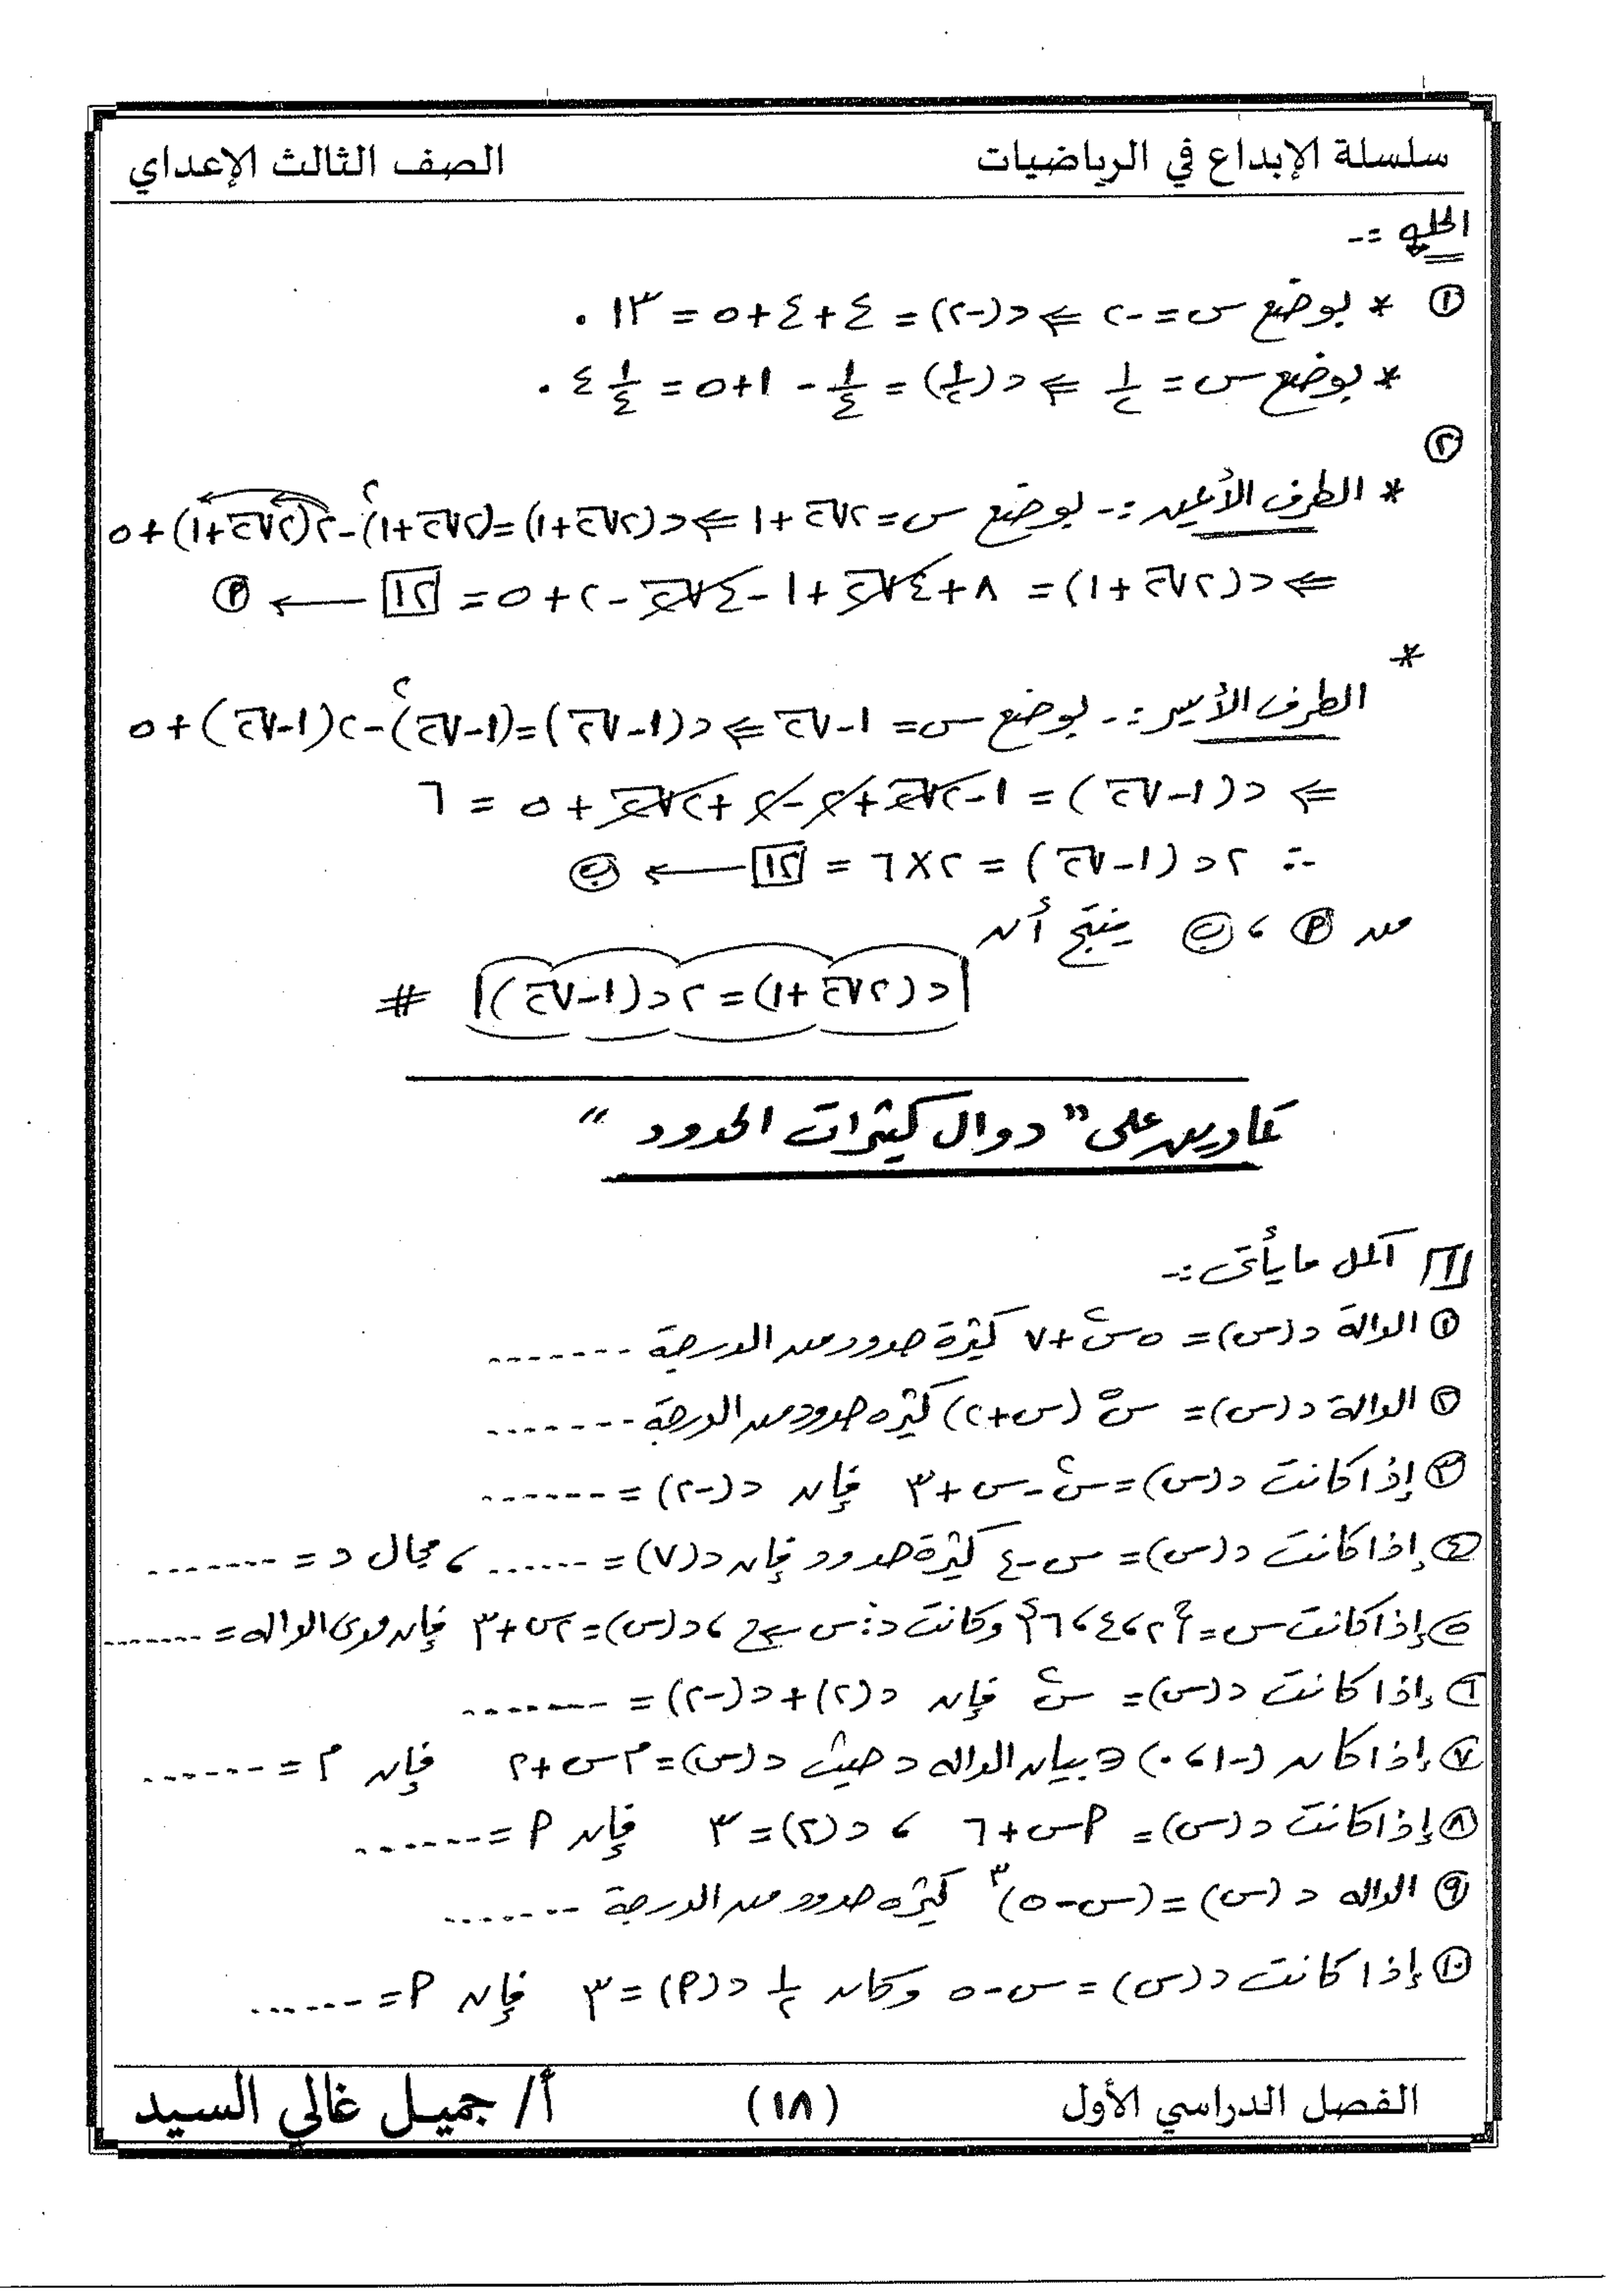 سلسلة الإبداع في الرياضيات
الصف الثالث الإعداي
الحل :-
① * بوضع س = -٢ ⇐ د(-٢) = ٤ + ٤ + ٥ = ١٣ .
* بوضع س = ١/٢ ⇐ د(١/٢) = ١/٤ - ١ + ٥ = ٤ ١/٤ .
②
* الطرف الأيمن :- بوضع س = ٢√٢ + ١ ⇐ د(٢√٢ + ١) = (٢√٢ + ١)² - ٢(٢√٢ + ١) + ٥
⇐ د(٢√٢ + ١) = ٨ + ٤√٢ + ١ - ٤√٢ - ٢ + ٥ = ١٢ ← Ⓟ
*
الطرف الأيسر :- بوضع س = ١ - √٢ ⇐ د(١ - √٢) = (١ - √٢)² - ٢(١ - √٢) + ٥
⇐ د(١ - √٢) = ١ - ٢√٢ + ٢ - ٢ + ٢√٢ + ٥ = ٦
∴ ٢ د(١ - √٢) = ٢ × ٦ = ١٢ ← ب
من P ، ب ينتج أن
د(٢√٢ + ١) = ٢ د(١ - √٢) #
تمارين على " دوال كثيرات الحدود "
١ أكمل ما يأتى :-
① الدالة د(س) = ٥س² + ٧ كثيرة حدود من الدرجة -------
② الدالة د(س) = س⁵ (س + ٢) كثيره حدود من الدرجة -------
③ إذا كانت د(س) = س² - س + ٣ فإن د(-٢) = -------
④ إذا كانت د(س) = س - ٤ كثيرة حدود فإن د(٧) = ------ ، مجال د = -------
⑤ إذا كانت س = {٢ ، ٤ ، ٦} وكانت د : س ← ح ، د(س) = ٢س + ٣ فإن مدى الداله = -------
⑥ إذا كانت د(س) = س² فإن د(٢) + د(-٢) = -------
⑦ إذا كان (-١ ، ٠) ∈ بيان الداله د حيث د(س) = ٢س + م فإن م = -------
⑧ إذا كانت د(س) = P س + ٦ ، د(٢) = ٣ فإن P = -------
⑨ الداله د(س) = (س - ٥)³ كثيره حدود من الدرجة -------
⑩ إذا كانت د(س) = س - ٥ وكان ١/٢ د(P) = ٣ فإن P = -------
الفصل الدراسي الأول
(١٨)
أ/ جميل غالي السيد